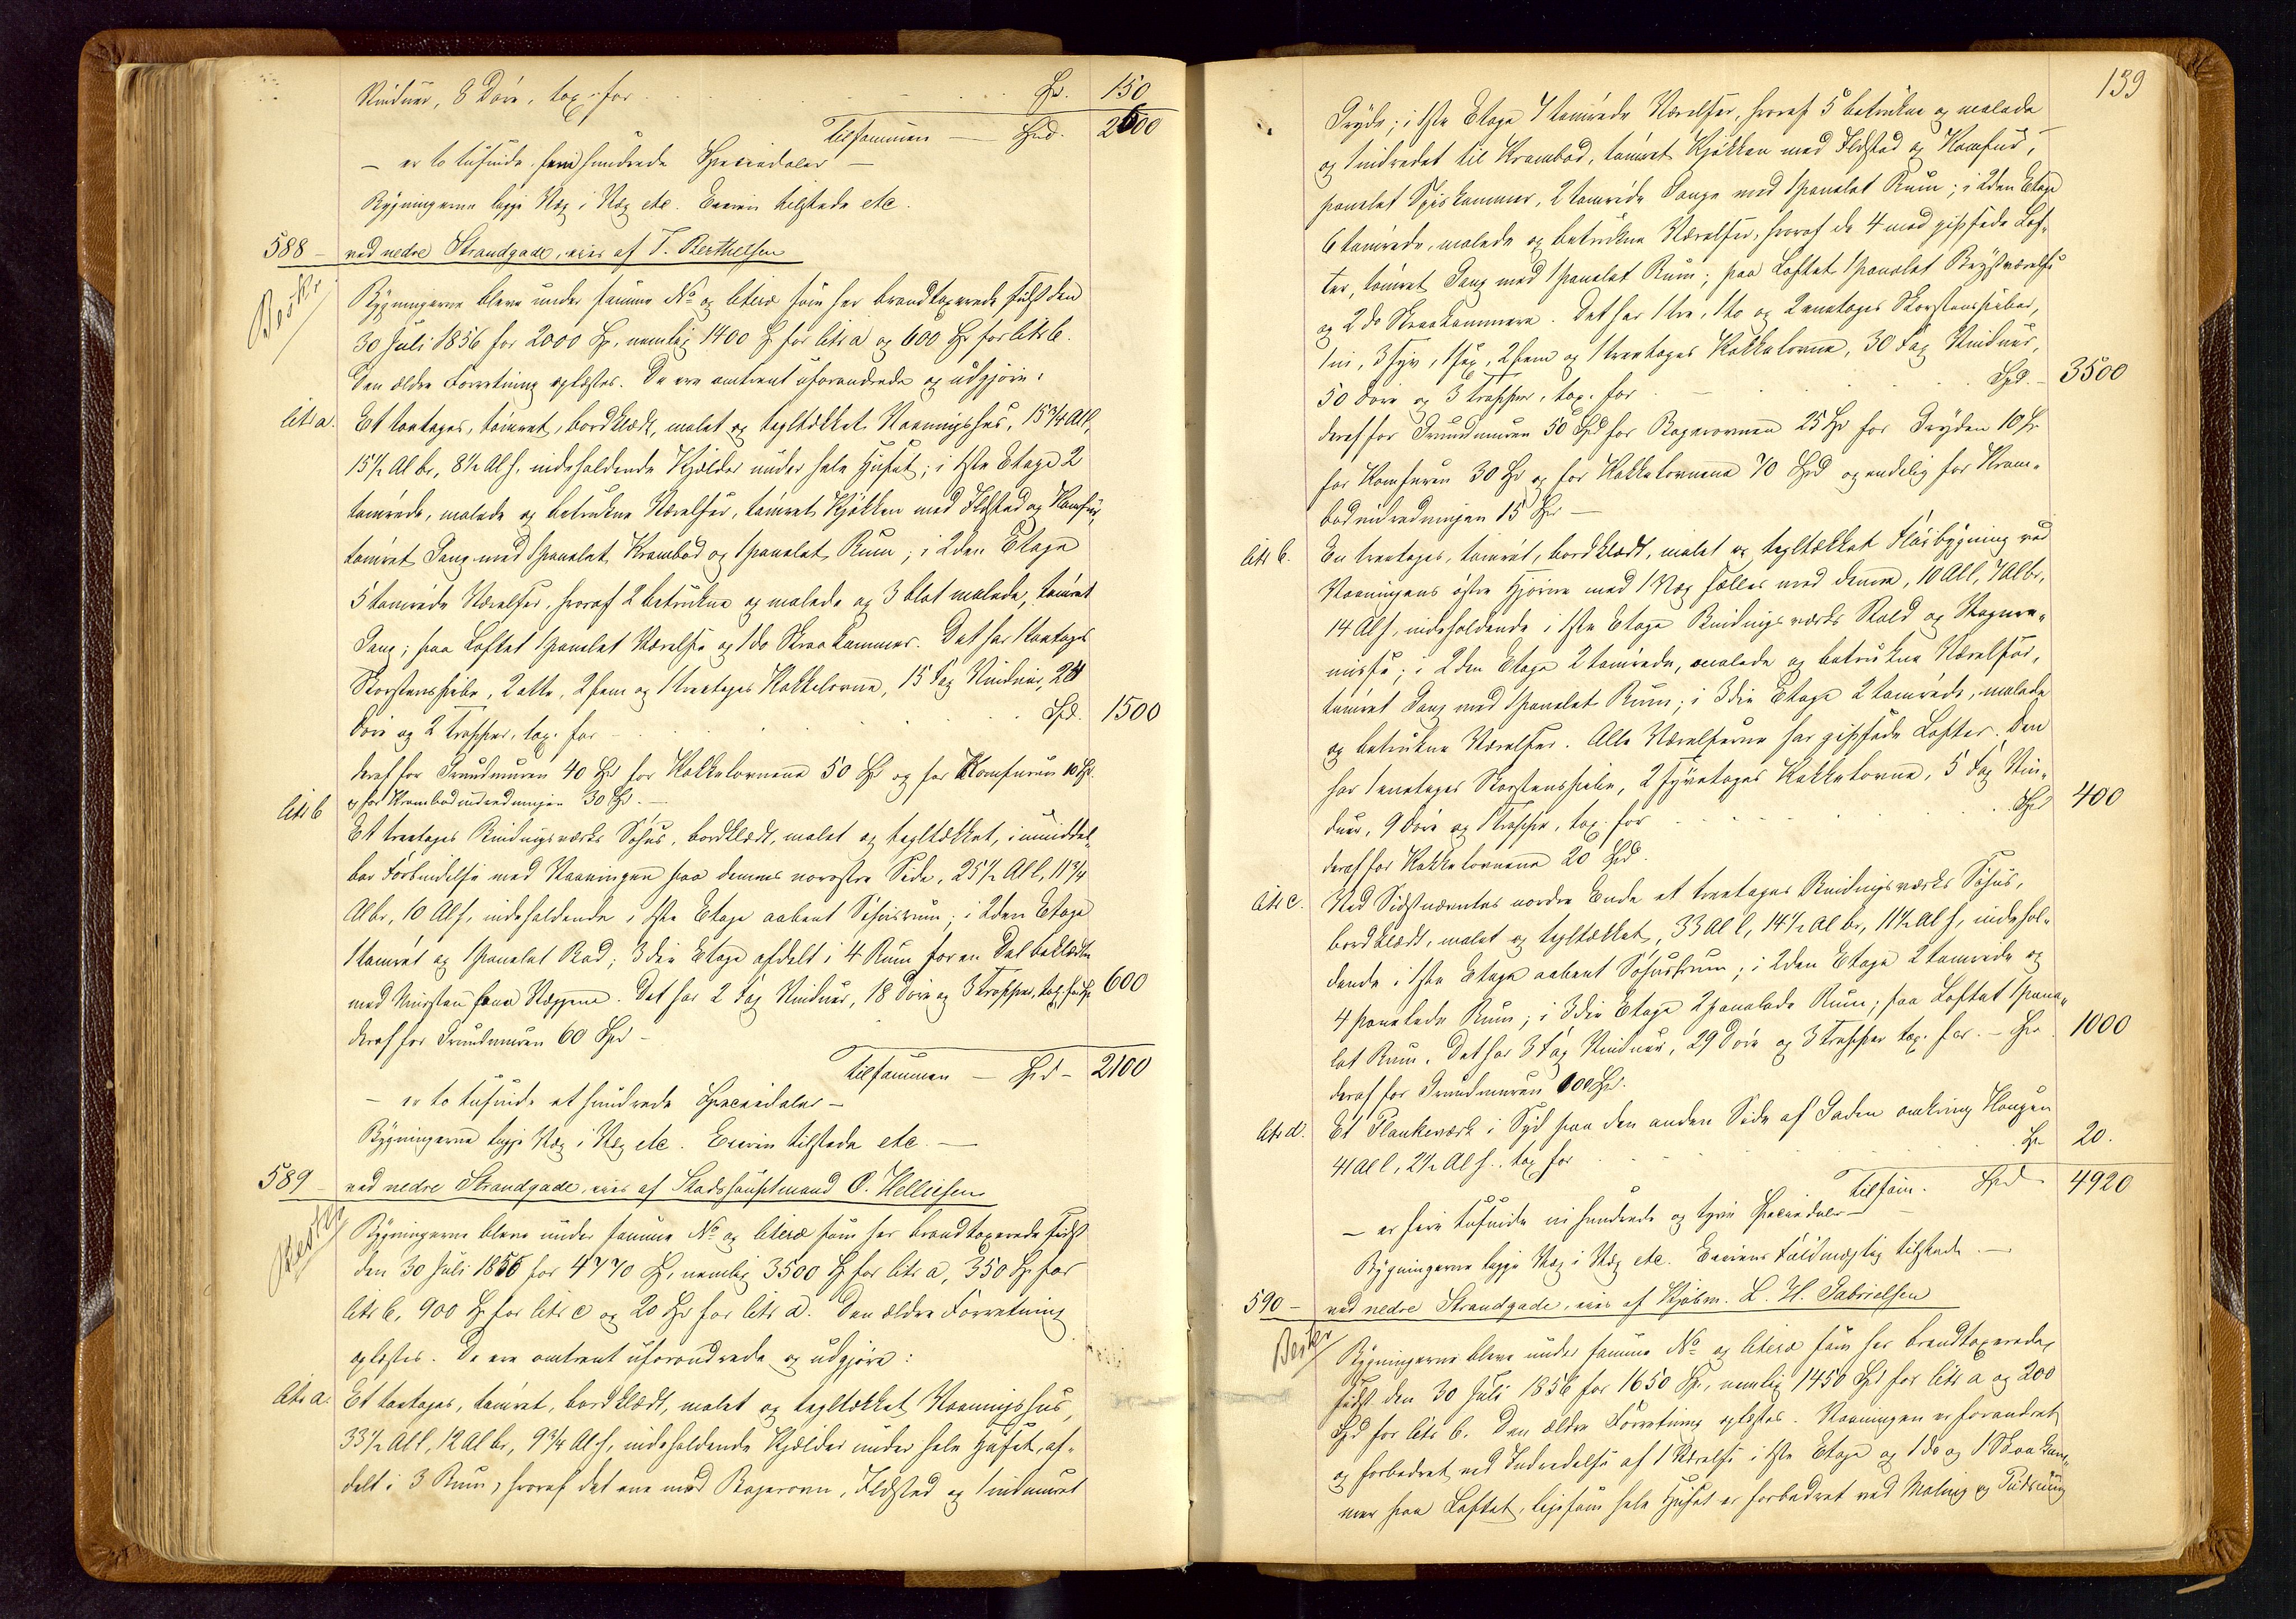 Vinduer, 8 Döre, tax. for . . . Spd. 150
Tilsammen — Spd. 2600
— er to tusinde sex hundrede Speciedaler —
Bygningerne ligge Væg i Væg etc. Eieren tilstede etc.
588 — ved nedre Strandgade, eies af T. Berthelsen
Beskr.
Bygningerne bleve under samme No og litera som her brandtaxerede sidst den
30 Juli 1856 for 2000 Sp, nemlig 1400 Sp for litr a og 600 Sp for litr b.
Den ældre Forretning oplæstes. De ere omtrent uforandrede og udgjöre:
litr a. Et toetages, tömret, bordklædt, malet og tegltækket Vaaningshus, 15 3/4 Al l,
15 1/2 Al br, 8 1/2 Al h, indeholdende Kjælder under hele Huset; i 1ste Etage 2
tömrede, malede og betrukne Værelser, tömret Kjökken med Ildsted og Komfur,
tömret Gang med 1 panelet Krambod og 1 panelet Rum; i 2den Etage
5 tömrede Værelser, hvoraf 2 betrukne og malede og 3 blot malede, tömret
Gang; paa Loftet 1 panelet Værelse og 1 do Skraakammer. Det har 1 toetages
Skorstenspibe, 2 otte, 2 fem og 1 treetages Kakkelovne, 15 Fag Vinduer, 24
Döre og 2 Trapper, tax. for — . . . Spd. 1500
deraf for Grundmuren 40 Spd for Kakkelovnene 50 Spd og for Komfuren 10 Sp.
og for Krambodindredningen 30 Spd. —
litr b Et treetages Bindingsværks Söhus, bordklædt, malet og tegltækket, i umiddel„
bar Forbindelse med Vaaningen paa dennes norostre Side, 25 1/2 Al l, 11 3/4
Al br, 10 Al h, indeholdende i 1ste Etage aabent Söhusrum; i 2den Etage
1 tömret og 1 panelet Bod; 3die Etage afdelt i 4 Rum for en Del beklædte
med Mursten paa Væggene. Det har 2 Fag Vinduer, 18 Döre og 3 Trapper, tax. for Sp 600
deraf for Grundmuren 60 Spd —
Tilsammen — Spd — 2100
— er to tusinde et hundrede Speciedaler —
Bygningerne ligge Væg i Væg etc. Eieren tilstede etc. —
589 — ved nedre Strandgade, eies af Stadshauptmand O. Helliesen
Beskr
Bygningerne bleve under samme No og litera som her brandtaxerede sidst
den 30 Juli 1856 for 4770 Sp, nemlig 3500 Sp for litr a, 350 Sp for
litr b, 900 Sp for litr c og 20 Sp for litr d. Den ældre Forretning
oplæstes. De ere omtrent uforandrede og udgjöre:
litr a. Et toetages, tömret, bordklædt, malet og tegltækket Vaaningshus,
33 1/2 Al l, 12 Al br, 9 3/4 Al h, indeholdende Kjælder under hele Huset, af„
delt i 3 Rum, hvoraf det ene med Bagerovn, Ildsted og 1 indmuret
139
Gryde; i 1ste Etage 7 tömrede Værelser, hvoraf 5 betrukne og malede
og 1 indredet til Krambod, tömret Kjökken med Ildsted og Komfur,
panelet Spiskammer, 2 tömrede Gange med 1 panelet Rum; i 2den Etage
6 tömrede, malede og betrukne Værelser, hvoraf de 4 med gipsede Lof„
ter, tömret Gang med 1 panelet Rum; paa Loftet 1 panelet Kvistværelse
og 2 do Skraakammere. Det har 1 tre, 1 to og 2 enetages Skorstenspiber,
1 ni, 3 syv, 1 sex, 2 fem og 1 treetages Kakkelovne, 30 Fag Vinduer,
50 Döre og 3 Trapper, tax. for . . . Spd. — 3500
deraf for Grundmuren 50 Spd for Bagerovnen 25 Spd for Gryden 10 Sp
for Komfuren 30 Spd og for Kakkelovnene 70 Spd og endelig for Kram„
bodindredningen 15 Spd —
litr b. En treetages, tömret, bordklædt, malet og tegltækket Flöibygning ved
Vaaningens östre Hjörne med 1 Væg fælles med denne, 10 Al l, 7 Al br,
14 Al h, indeholdende i 1ste Etage Bindingsværks Stald og Vognre„
misse; i 2den Etage 2 tömrede, malede og betrukne Værelser,
tömret Gang med 1 panelet Rum; i 3die Etage 2 tömrede, malede
og betrukne Værelser. Alle Værelserne har gipsede Lofter. Den
har 1 enetages Skorstenspibe, 2 syvetages Kakkelovne, 5 Fag Vin„
duer, 9 Döre og 1 Trappe, tax. for . . . Spd 400
deraf for Kakkelovnene 20 Spd.
litr c. Ved Sidstnævntes nordre Ende et treetages Bindingsværks Söhus,
bordklædt, malet og tegltækket, 33 Al l, 14 1/2 Al br, 11 1/2 Al h, indehol„
dende i 1ste Etage aabent Söhusrum; i 2den Etage 2 tömrede og
4 panelede Rum; i 3die Etage 2 panelede Rum; paa Loftet 1 pane„
let Rum. Det har 3 Fag Vinduer, 29 Döre og 3 Trapper tax. for. — Spd 1000
deraf for Grundmuren 100 Spd.
litr d. Et Plankeværk i Syd paa den anden Side af Gaden omkring Haugen
41 Al l, 2 1/2 Al h. tax for . . . Sp 20.
Tilsam. Spd 4920
— er fire tusinde ni hundrede og tyve Speciedaler —
Bygningerne ligge Væg i Væg etc. Eierens Fuldmægtig tilstede. —
590 — ved nedre Strandgade, eies af Kjöbm. L. H. Gabrielsen
Beskr
Bygningerne bleve under samme No og litera som her brandtaxerede,
sidst den 30 Juli 1856 for 1650 Sp, nemlig 1450 Spd for litr a og 200
Spd for litr b. Den ældre Forretning oplæstes. Vaaningen er forandret
og forbedret ved Indredelse af 1 Værelse i 1ste Etage og 1 do og 1 Skraakam„
mer paa Loftet, ligesom hele Huset er forbedret ved Maling og Pudsning